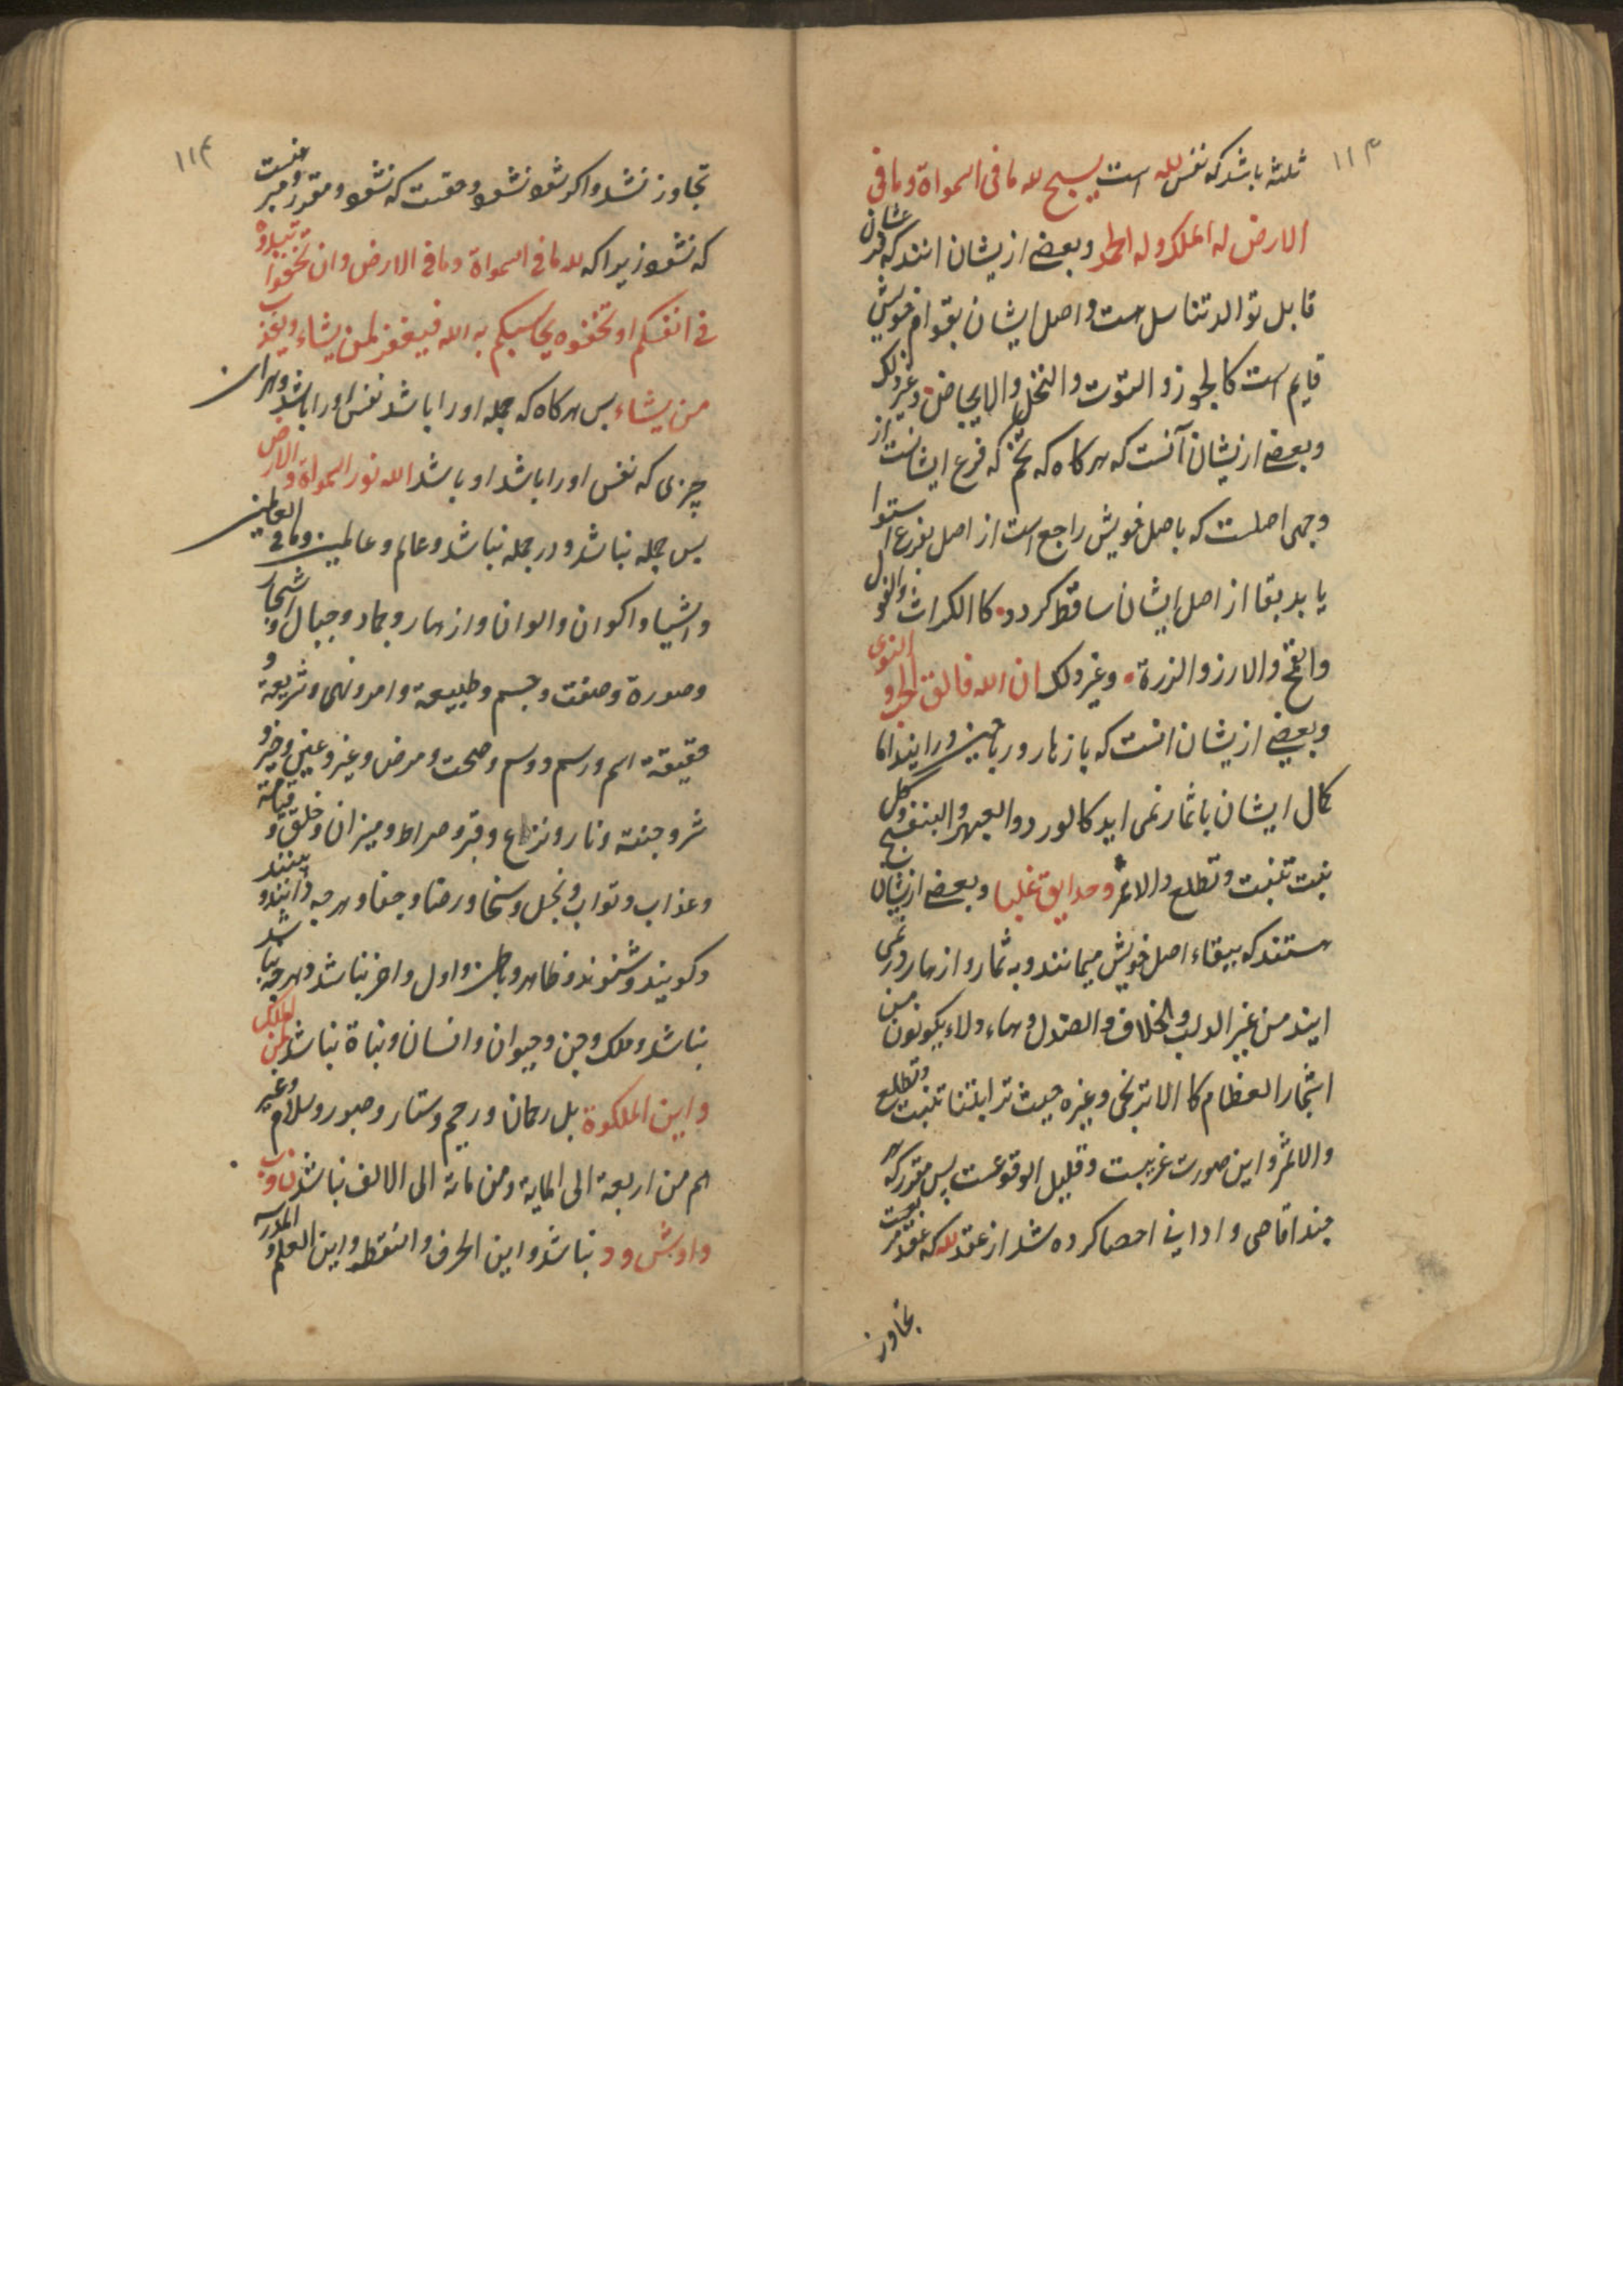 ١١٣
ثلثه باشد که نفس لله است یسبح لله ما فی السمواة و ما فی
الارض له الملک و له الحمد و بعضی ازیشان انند که فرعشان
قابل توالد تناسل است و اصل ایشان بقوام خویش
قایم است کالجوز و التوت و النخل و الایحاض و غیر ذلک
و بعضی ازیشان آنست که هرکاه که تخم که فرع ایشانست از
وجهی اصلست که باصل خویش راجع است از اصل بفرع استوا
یابد بقا از اصل ایشان ساقط کردد کا الکراث و الفول
والقمح والارز والزرة وغیر ذلک ان الله فالق الحب و النوی
و بعضی ازیشان انست که بازهار و ریاحین در ایند اما
کمال ایشان باثمار نمی اید کالورد و العبهر و البنفسج و کل
نبت تنبت و تطلع و لاثمر و حدایق غلبا و بعضی ازیشان
هستند که ببقاء اصل خویش میمانند و به ثمار و ازهار در نمی
ایند من غیر الدلب و الخلاف و الصندل و هاء ولاء یکونون من
اشجار العظام کا الاترنجی و غیره حیث ترابتنا تنبت و تطلع
و لاثمر و این صورت غریبست و قلیل الوقوعست پس مقرر که هر
چند اقاصی و ادانی احصا کرده شد از عقد لله که عقد مر بعست
تجاوز
١١٤
تجاوز نشد و اکر شود نشود و حقست که نشود و مقرر و مبرهنست
که نشود زیرا که لله ما فی السمواة و ما فی الارض و ان تبدوا
فی انفسکم او تخفوه یحاسبکم به الله فیغفر لمن یشاء و یعذب
من یشاء پس هرکاه که جمله اورا باشد نفس اورا باشد و هران
چیزی که نفس اورا باشد او باشد الله نور السمواة و الارض
پس جمله نباشد و در جمله نباشد و عالم و عالمین و ما فی العالمین
و اشیا و اکوان و الوان و ازهار و جماد و جبال و اشجار
و صورة و صفت و جسم و طبیعة و امر و نهی و شریعة و
حقیقة اسم و رسم و وسم و صحت و مرض و غیر و عین و خیر و
شر و جنة و نار و نزاع و قبر و صراط و میزان و خلق و قیامة
و عذاب و ثواب و بخل و سخا و رضا و جفا و هرچه دانند و بینند
و کویند و شنوند و ظاهر و باطن و اول و اخر نباشد و هرچه نباشد
نباشد و ملک و جن و حیوان و انسان و نباة نباشد لمن الملک
و این الملکوة بل رحمان و رحیم و ستار و صبور و سلام و غیر
هم من اربعة الی المایة و من مائة الی الالف نباشد
نباشد و این الحرف و النقطه و این العلم و المدرسه